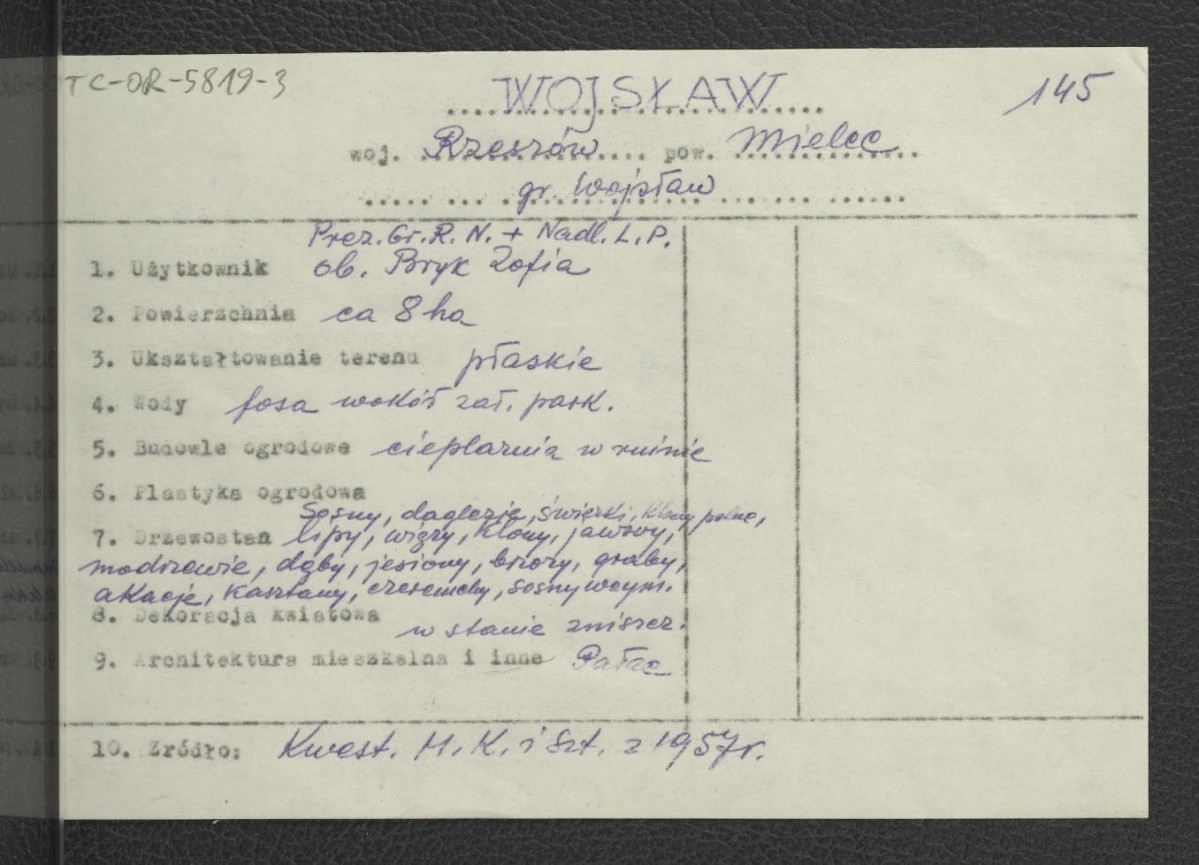 TC-OR-5819-3
WOJSŁAW
145
woj. Rzeszów pow. Mielec
gr. Wojsław
Prez. Gr. R. N. + Nadl. L. P.
1. Użytkownik ob. Bryk Zofia
2. Powierzchnia ca 8 ha
3. Ukształtowanie terenu płaskie
4. Wody fosa wokół zał. park.
5. Budowle ogrodowe cieplarnia w ruinie
6. Plastyka ogrodowa
Sosny, daglezje, świerki, klony polne,
7. Drzewostan lipy, wiązy, klony, jawory,
modrzewie, dęby, jesiony, brzozy, graby,
akacje, kasztany, czeremchy, sosny weym.
8. Dekoracja kwiatowa
w stanie zniszcz.
9. Architektura mieszkalna i inne Pałac
10. Źródło: Kwest. M. K. i Szt. z 1957 r.